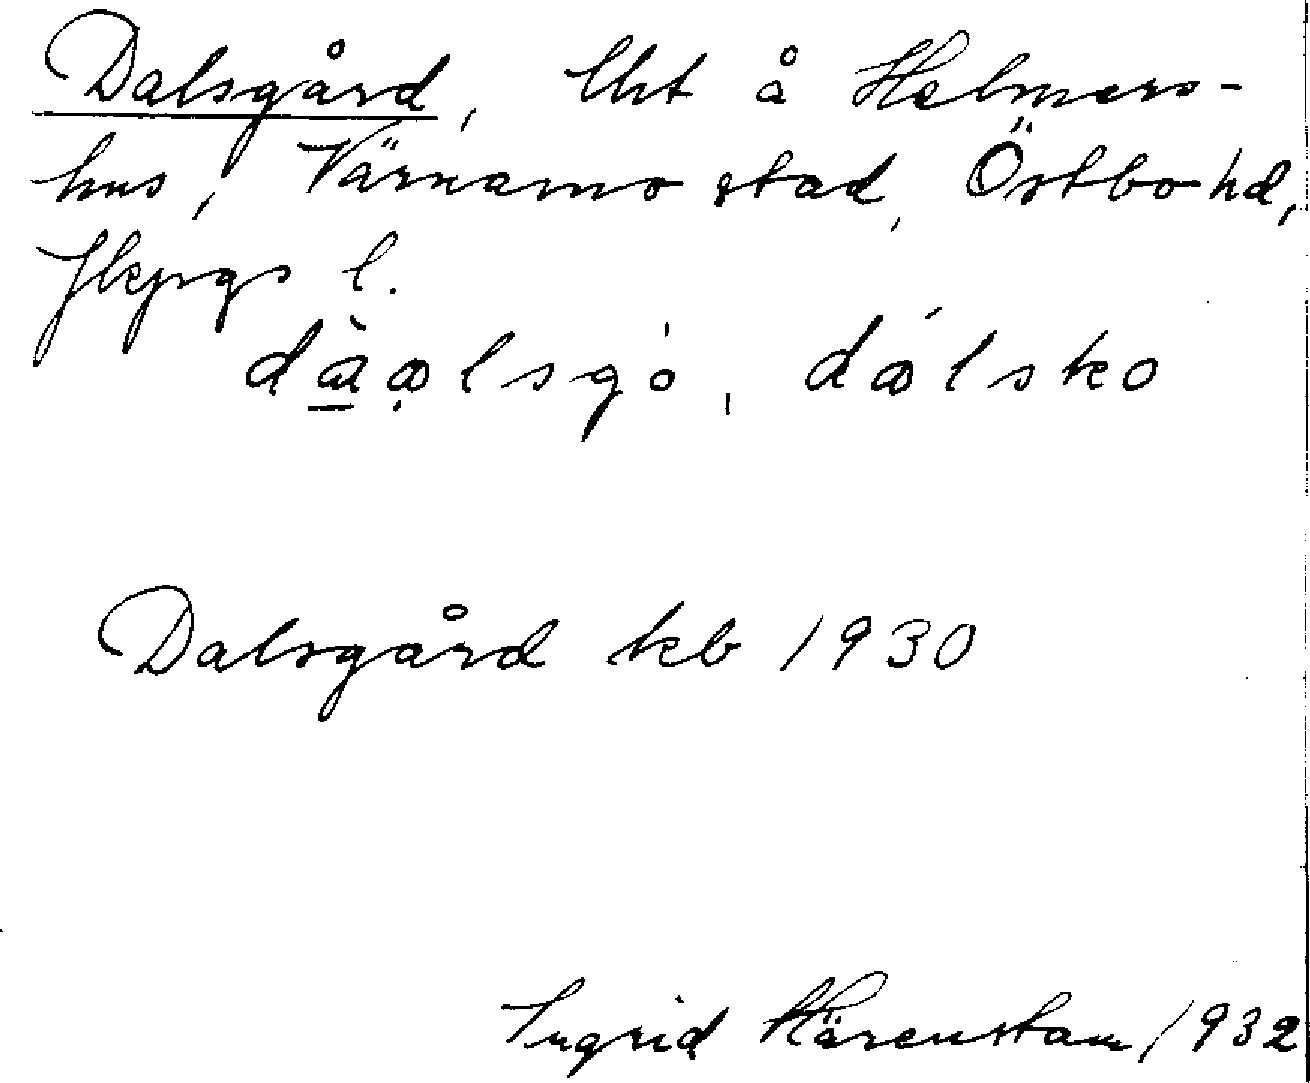 Dalsgård, lht å Helmers-
hus, Värnamo stad, Östbo hd,
Jkpgs l.
dàɑlsgo, dálsko
Dalsgård kb 1930
Ingrid Härenstam 1932